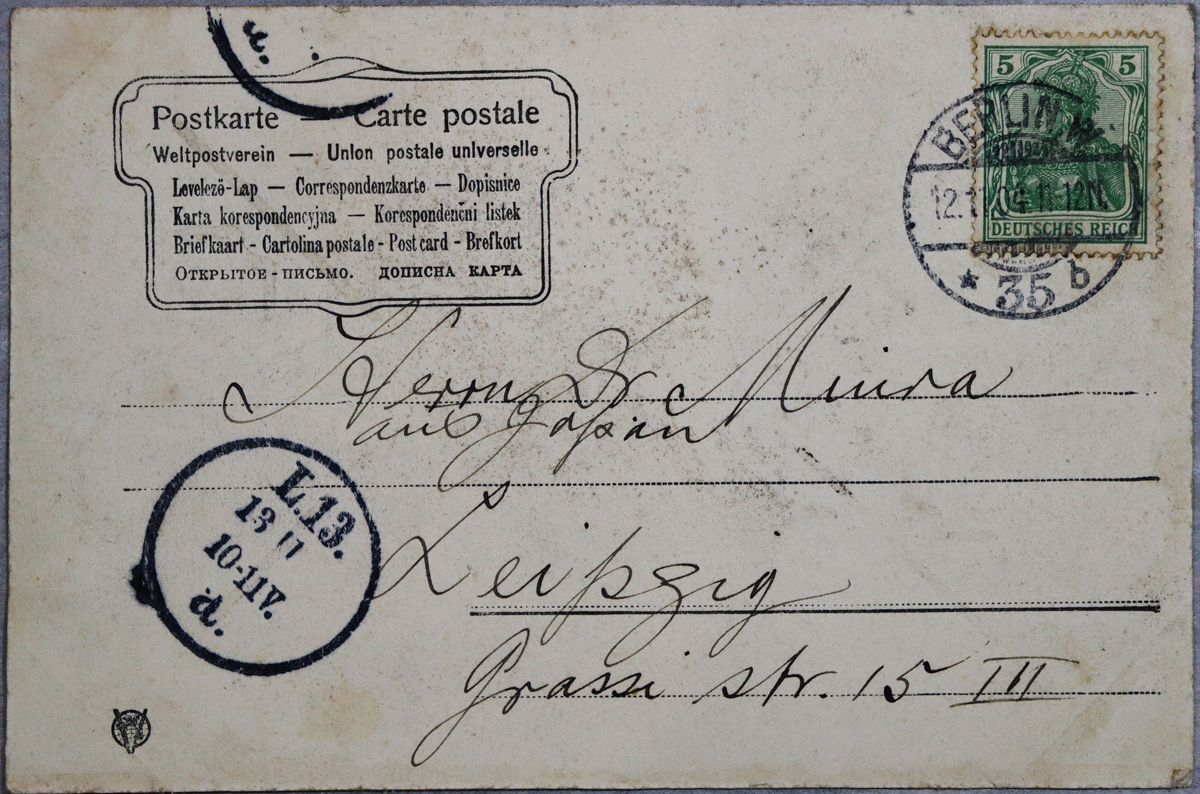 Postkarte — Carte postale
Weltpostverein — Union postale universelle
Levelező-Lap — Correspondenzkarte — Dopisnice
Karta korespondencyjna — Korespondenčni listek
Briefkaart - Cartolina postale - Post card - Brefkort
Открытое - письмо. дописна карта
5 5
DEUTSCHES REICH
BERLIN W.
11-12N.
* 35 b
Herrn Dr Miura
aus Japan
Leipzig
Grassi str. 15 III
L.13.
13 11
10-11V.
a.